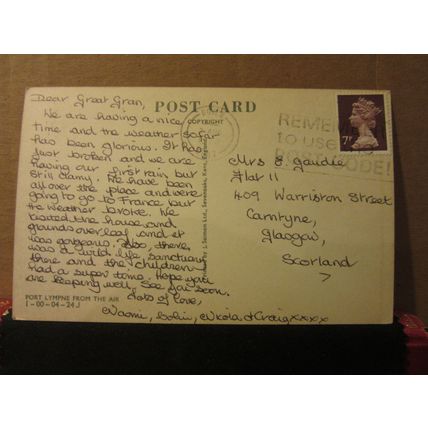 Dear Great Gran,
We are having a nice
time and the weather so far
has been glorious. It has
just broken and we are
having our first rain but
still clamy. We have been
all over the place and were
going to go to France but
the weather broke. We
visited the house and
grounds overleaf and it
was gorgeous. Also, there
was a wild life sanctuary
there and the children
had a super time. Hope you
are keeping well. See you soon.
Lots of love,
Naomi, Colin, Nikola & Craig xxxx
PORT LYMPNE FROM THE AIR
1-00-04-24
POST CARD
COPYRIGHT
by J. Salmon Ltd., Sevenoaks, Kent, England
REMEM
to use
POSTCODE!
7P
Mrs E. Gaudie
Flat 11
409 Warriston Street
Carntyne,
Glasgow,
Scotland